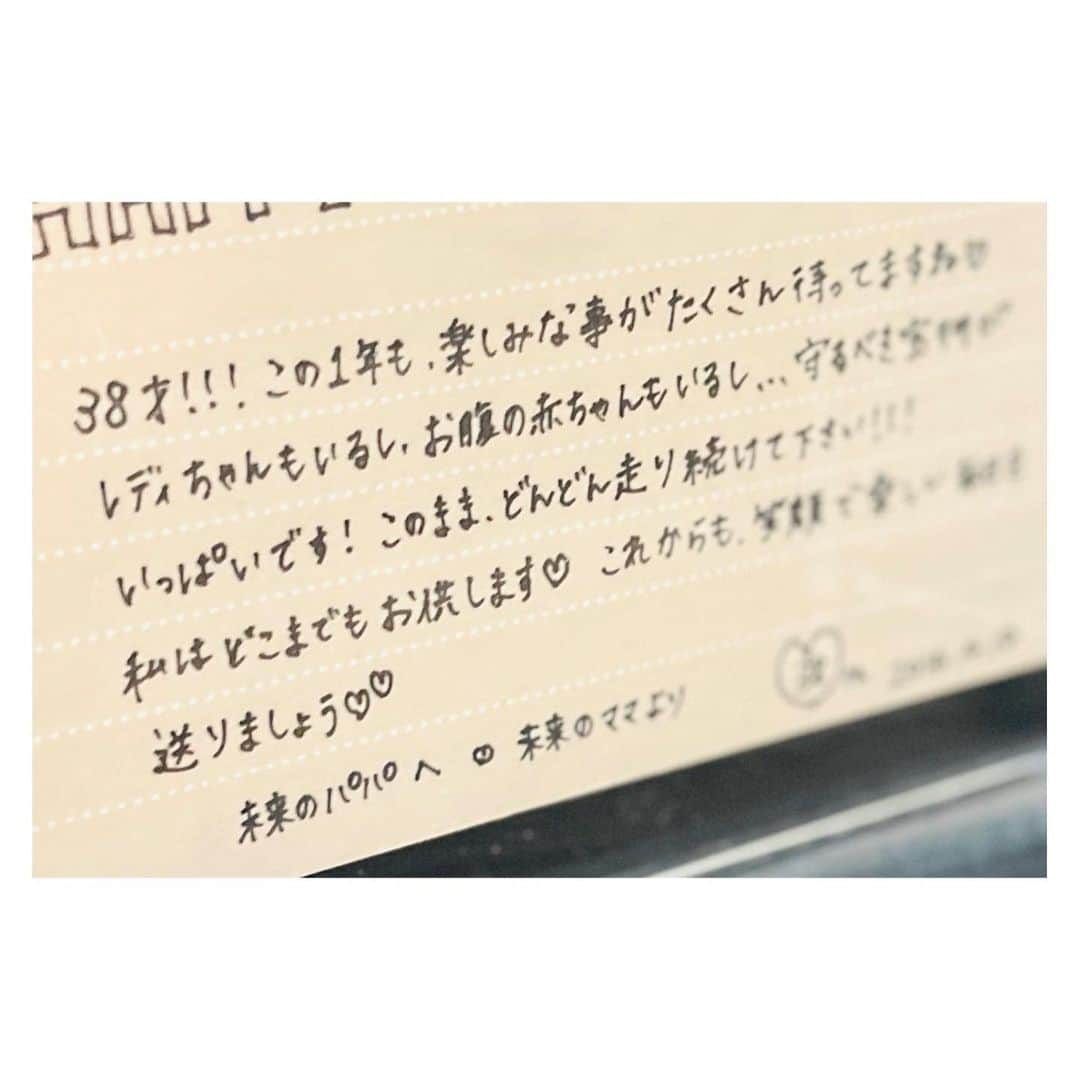 HAPPY
38才!!! この1年も、楽しみな事がたくさん待ってますね♡
レディちゃんもいるし、お腹の赤ちゃんもいるし... 守るべき宝物が
いっぱいです! このまま、どんどん走り続けて下さい!!!
私はどこまでもお供します♡ これからも、笑顔で楽しい
送りましょう♡♡
未来のパパへ ♡ 未来のママより